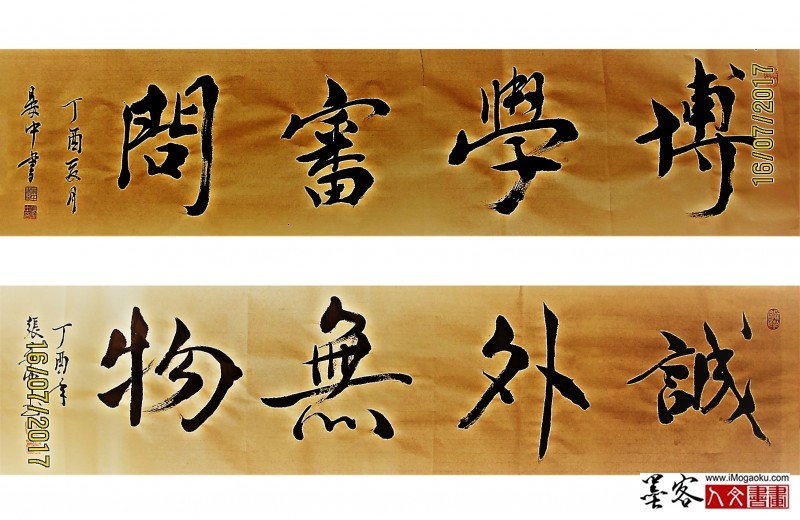 博學審問
丁酉夏月
晏中書
16/07/2017
誠外無物
丁酉年
張
16/07/2017
墨客
www.iMogaoku.com
人文書畫